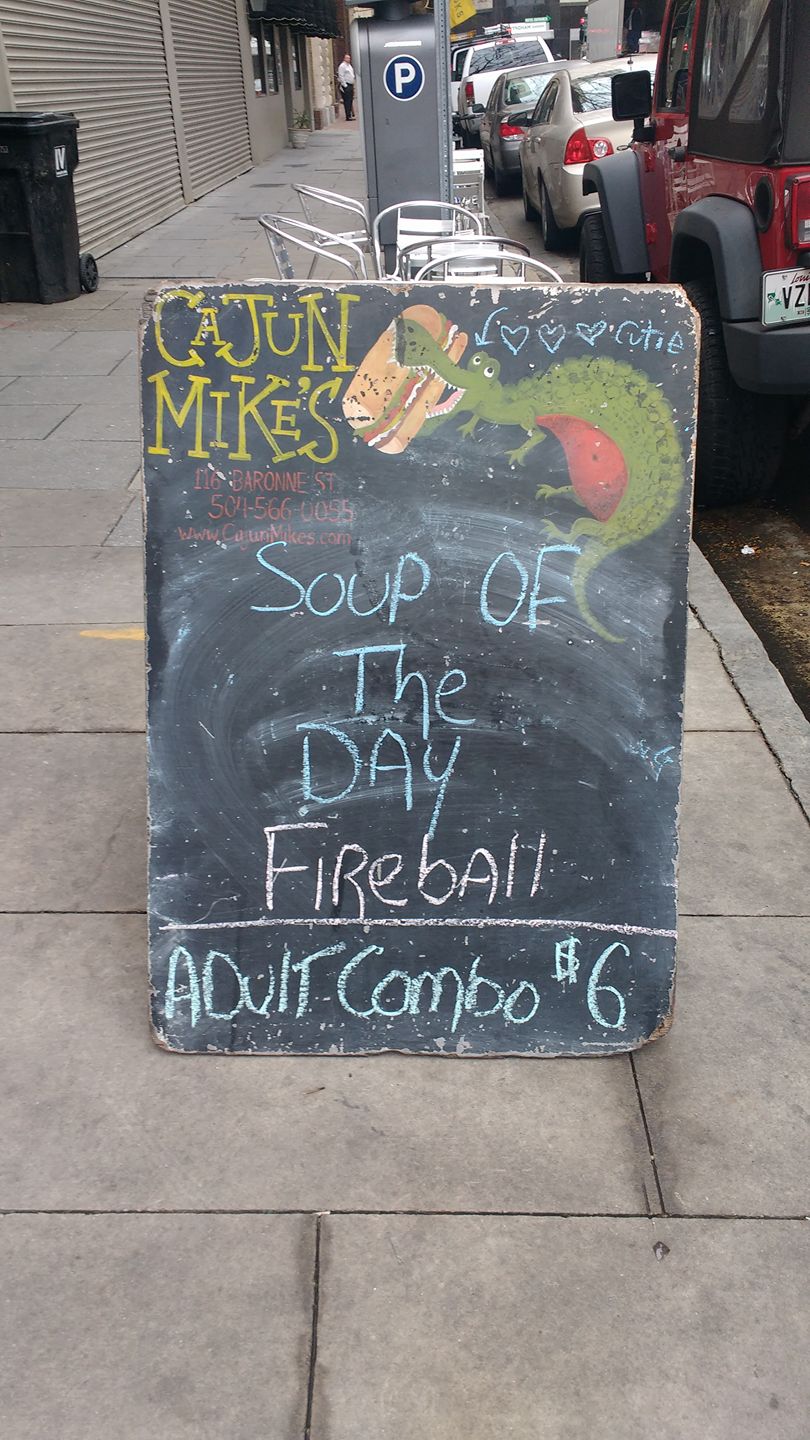 P
CAJUN
MIKE'S
CUTIE
116 BARONNE ST.
504-566-0055
www.CajunMikes.com
SOUP OF
The
DAY
FIREbAll
ADulT Combo $6